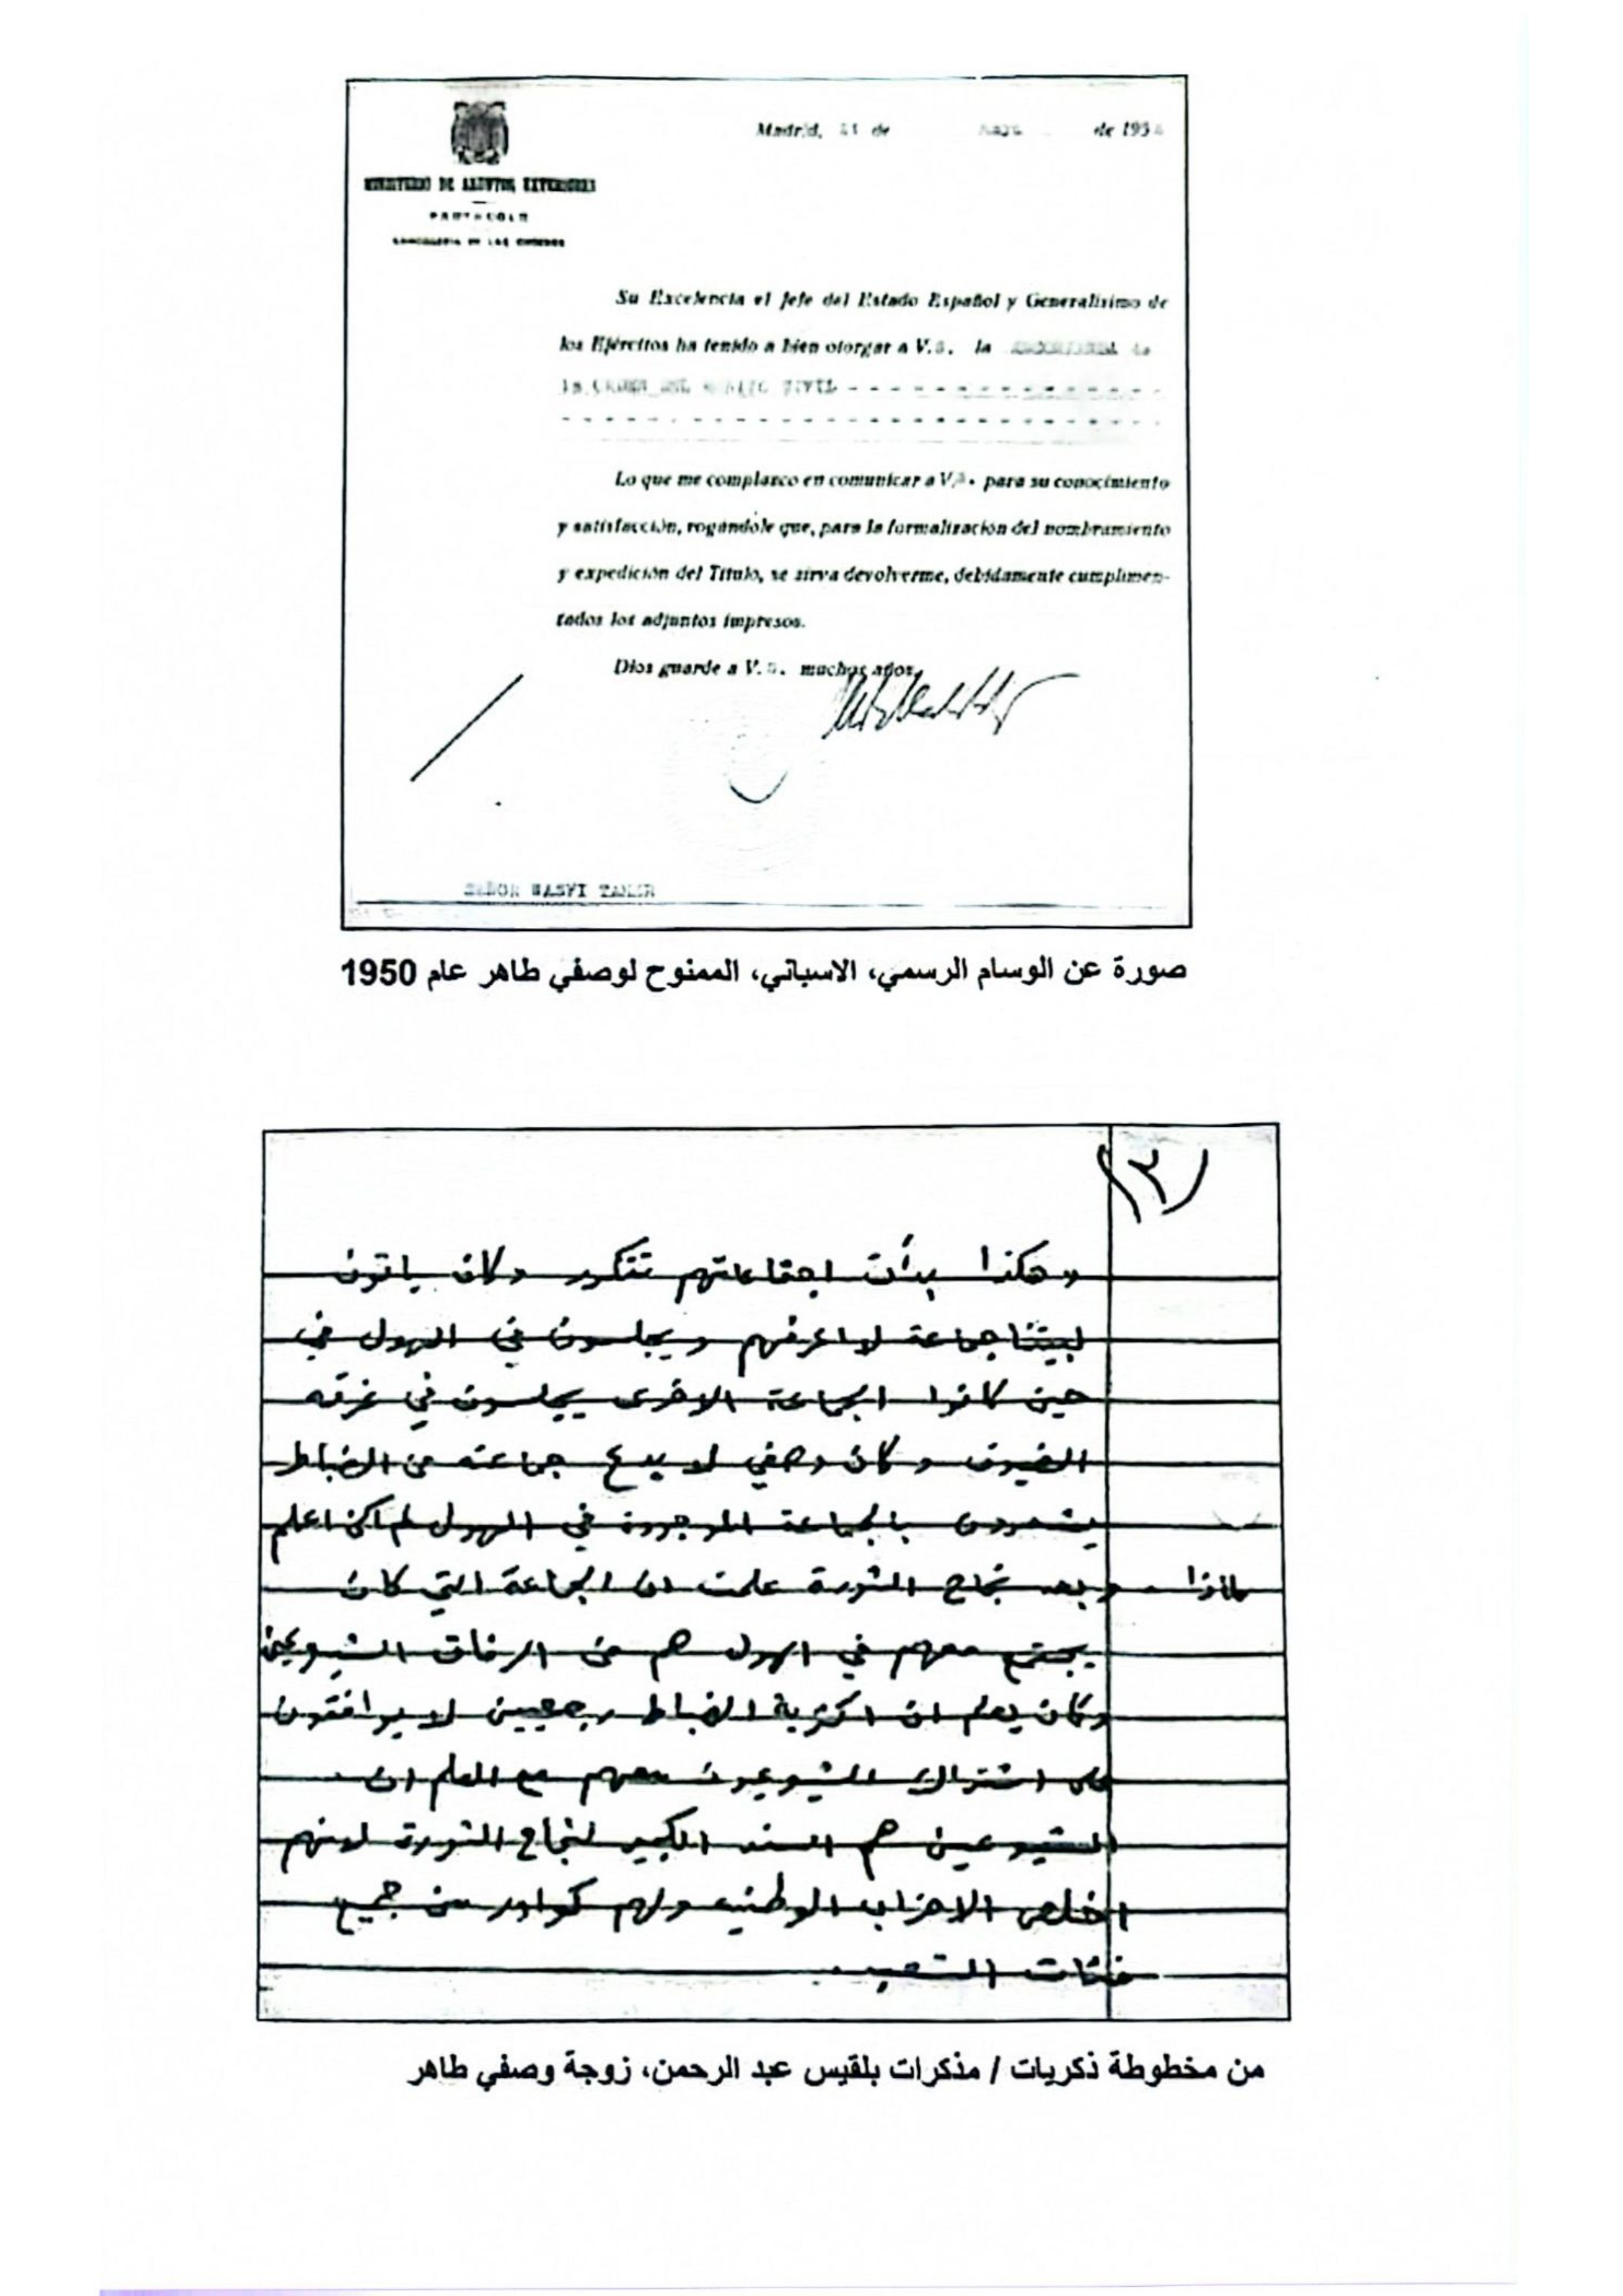 Madrid, de de 195
MINISTERIO DE ASUNTOS EXTERIORES
PROTOCOLO
CANCILLERIA DE LAS ORDENES
Su Excelencia el Jefe del Estado Español y Generalísimo de
los Ejércitos ha tenido a bien otorgar a V. la
la CIVIL
Lo que me complazco en comunicar a V. para su conocimiento
y satisfacción, rogándole que, para la formalización del nombramiento
y expedición del Título, se sirva devolverme, debidamente cumplimen-
tados los adjuntos impresos.
Dios guarde a V. muchos años.
SEÑOR WASFI TAHIR
صورة عن الوسام الرسمي، الاسباني، الممنوح لوصفي طاهر عام 1950
(٣)
وهكذا بدأت اجتماعاتهم تتكرر وكان ياتون
لبيتنا جماعة لا اعرفهم ويجلسون في الهول في
حين كانوا الجماعة الاخرى يجلسون في غرفه
الضيوف وكان وصفي لا يدع جماعته من الضباط
يشعرون بالجماعة الموجودة في الهول لم اكن اعلم
لماذا . وبعد نجاح الثورة علمت ان الجماعة التي كان
يجتمع معهم في الهول هم من الرفاق الشيوعين
وكان يعلم ان اكثرية الضباط رجعيين لا يوافقون
على اشتراك الشيوعيون معهم مع العلم ان
الشيوعين هم السند الكبير لنجاح الثورة لانهم
اخلص الاحزاب الوطنيه ولهم كوادر من جميع
فئات الشعب .
من مخطوطة ذكريات / مذكرات بلقيس عبد الرحمن، زوجة وصفي طاهر